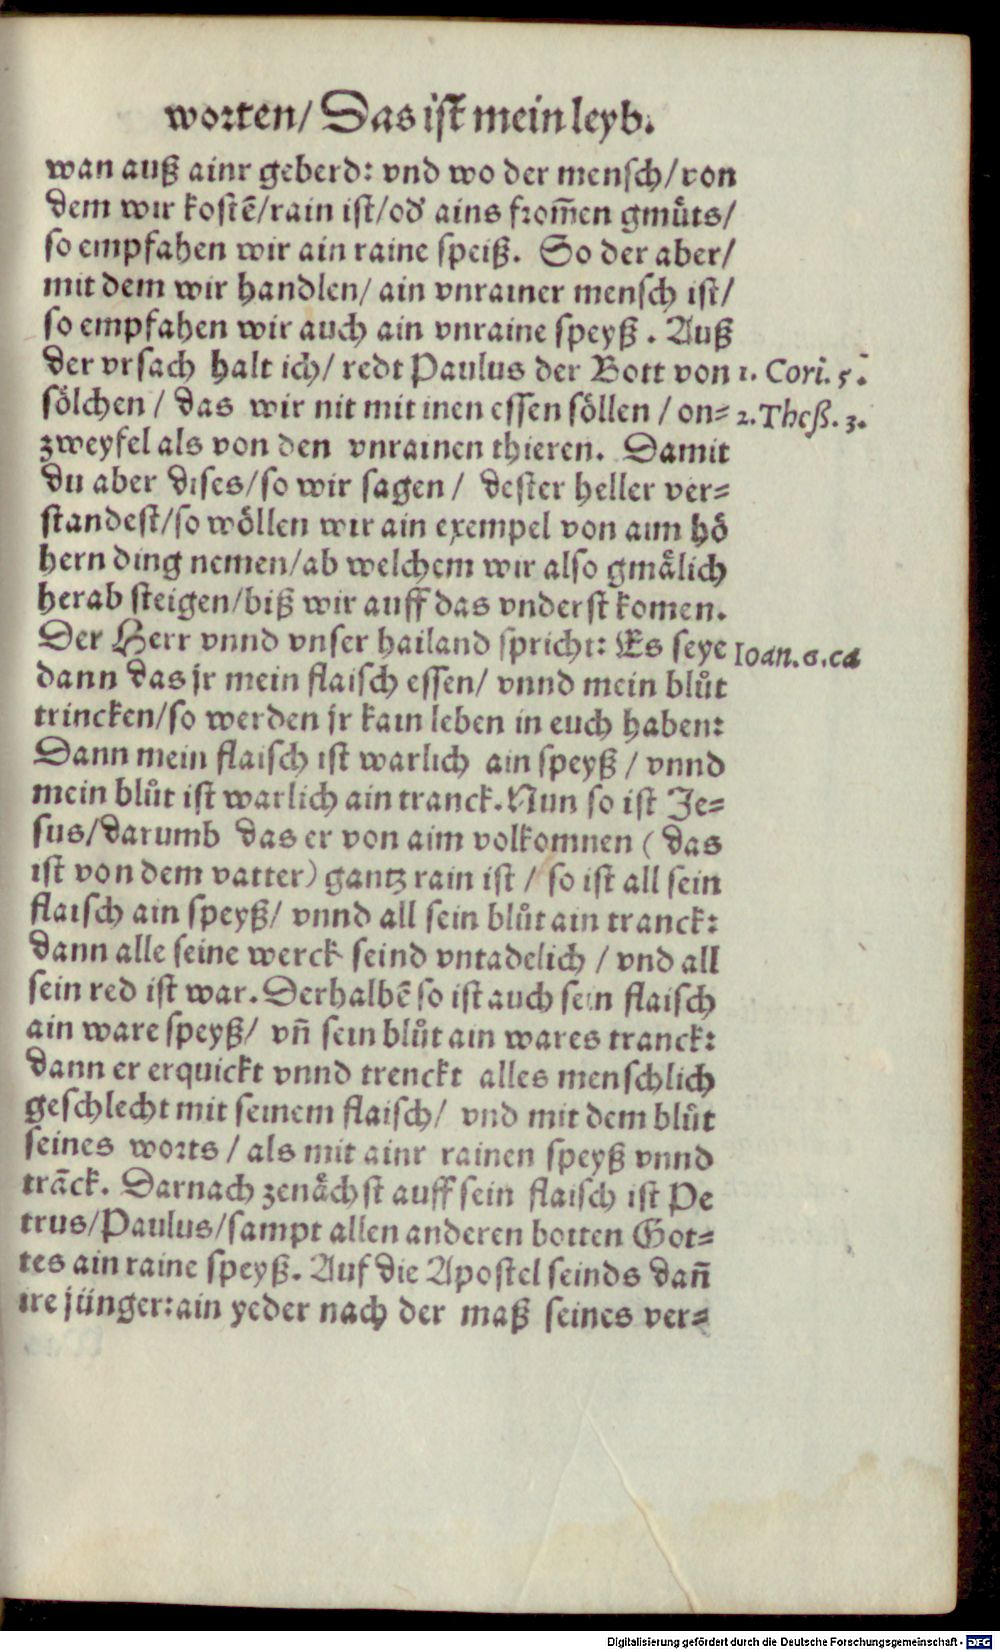 worten/ Das ist mein leyb.
wan auß ainr geberd: vnd wo der mensch/von
dem wir kostē/rain ist/od' ains from̄en gmuͤts/
so empfahen wir ain raine speiß. So der aber/
mit dem wir handlen/ ain vnrainer mensch ist/
so empfahen wir auch ain vnraine speyß. Auß
der vrsach halt ich/ redt Paulus der Bott von 1. Cori. 5.
soͤlchen/ das wir nit mit inen essen soͤllen/ on= 2. Theß. 3.
zweyfel als von den vnrainen thieren. Damit
du aber dises/so wir sagen/ dester heller ver=
standest/so woͤllen wir ain exempel von aim hoͤ
hern ding nemen/ab welchem wir also gmaͤlich
herab steigen/biß wir auff das vnderst komen.
Der Herr vnnd vnser hailand spricht: Es seye Ioan. 6. ca
dann das jr mein flaisch essen/ vnnd mein bluͦt
trincken/so werden jr kain leben in euch haben:
Dann mein flaisch ist warlich ain speyß/ vnnd
mein bluͦt ist warlich ain tranck. Nun so ist Je=
sus/darumb das er von aim volkomnen (das
ist von dem vatter) gantz rain ist/ so ist all sein
flaisch ain speyß/ vnnd all sein bluͦt ain tranck:
dann alle seine werck seind vntadelich/ vnd all
sein red ist war. Derhalbē so ist auch sein flaisch
ain ware speyß/ vn̄ sein bluͦt ain wares tranck:
dann er erquickt vnnd trenckt alles menschlich
geschlecht mit seinem flaisch/ vnd mit dem bluͦt
seines worts/ als mit ainr rainen speyß vnnd
trāck. Darnach zenaͤchst auff sein flaisch ist Pe
trus/Paulus/sampt allen anderen botten Got=
tes ain raine speyß. Auf die Apostel seinds dan̄
ire jünger:ain yeder nach der maß seines ver=
Digitalisierung gefördert durch die Deutsche Forschungsgemeinschaft - DFG